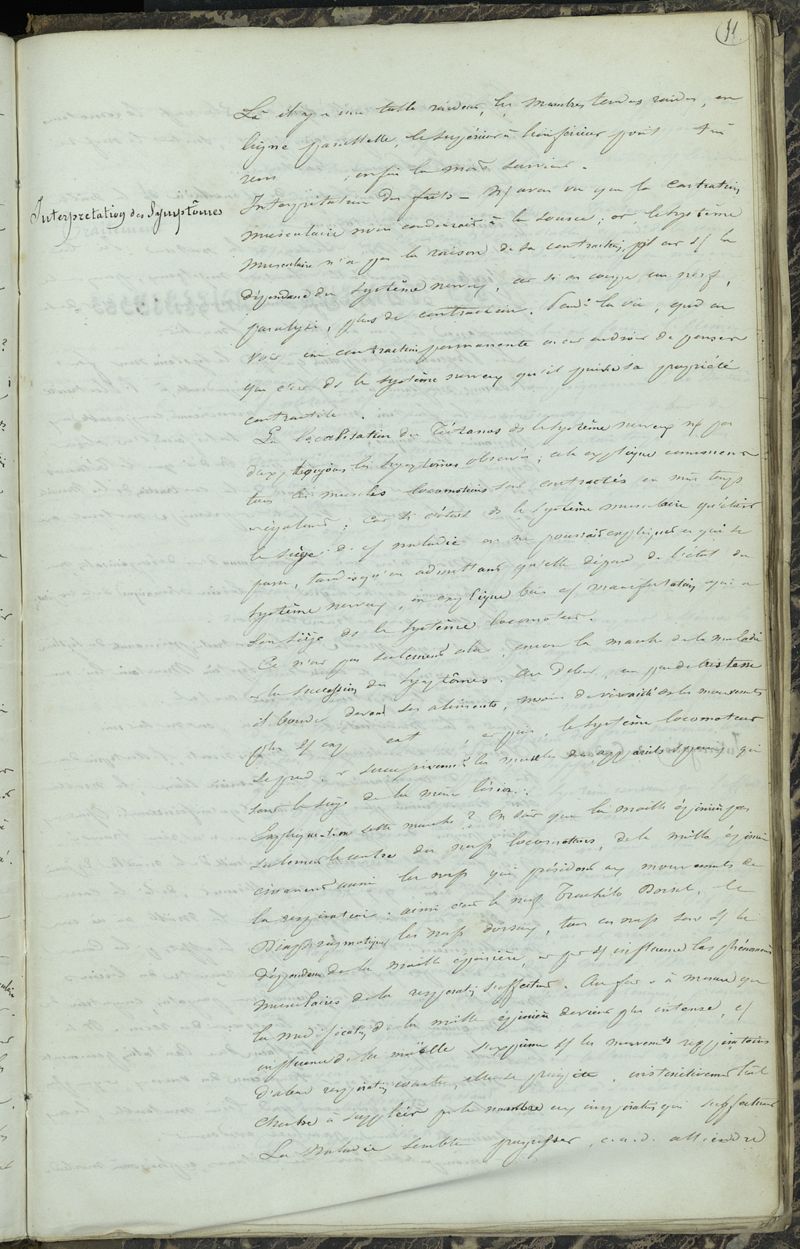 11
Là il y a une telle raideur, les membres tendus raides, en
ligne parallelle, le supérieur à l'inférieur
enfin la mort survient.
Interpretation des Symptômes
Interprétation des faits — N/ avons vu que la contraction
musculaire nous conduirait à la source; or, le système
musculaire n'a pas la raison de sa contraction, car la
dépendance du système nerveux, car si on coupe un nerf,
paralysie, plus de contraction. Pend.t la vie, quand on
voit une contraction permanente on est en droit de penser
que c'est ds le système nerveux qu'il puise sa propriété
contractile.
La localisation du Tétanos ds le système nerveux
les symptômes observés, cela explique comment
tous les muscles locomoteurs sont contractés en même temps
car si c'était ds le système musculaire qu'était
le siège de cette maladie on ne pourrait expliquer ce qui se
passe, tandis qu'en admettant qu'elle dépend de l'état du
système nerveux, on explique bien cette manifestation qui a
son siège ds le système locomoteur.
Ce n'est pas seulement cela, encore la marche de la maladie
et la succession des symptômes. Au début, un peu de tristesse
il boude devant ses aliments, moins de vivacité ds les mouvements
et puis, le système locomoteur
se prend, les muscles des appareils qui
sont le siège de la même lésion.
Explique-t-on cette marche? On sait que la moëlle épinière n'est pas
seulement le centre des nerfs locomoteurs, de la moëlle épinière
émanent aussi les nerfs qui président aux mouvements de
la respiration: ainsi c'est le nerf Trachélo Dorsal, le
Diaphragmatique, les nerfs dorsaux, tous ces nerfs sont ss la
dépendance de la moëlle épinière, et par son influence les phénomènes
musculaires de la respiration s'effectuent. Au fur et à mesure que
la modification de la moëlle épinière devient plus intense, cette
influence de la moëlle s'exprime sur les mouvements respiratoires
d'abord respiration courte, elle se précipite, instinctivement l'être
cherche à suppléer par le nombre aux inspirations qui s'effectuent
La Maladie semble progresser, c.a.d. atteindre